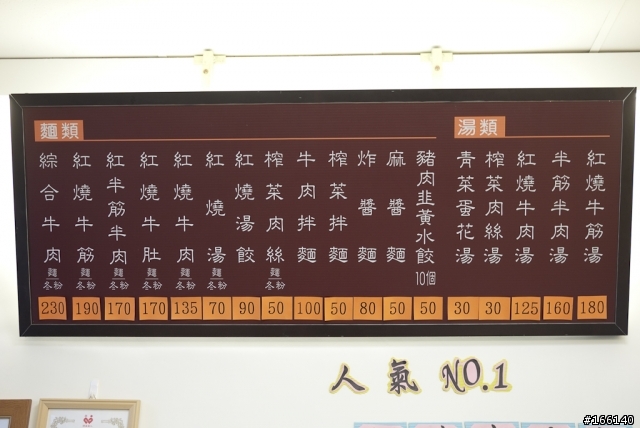 麵類
綜合牛肉麵/冬粉 230
紅燒牛筋麵/冬粉 190
紅半筋半肉麵/冬粉 170
紅燒牛肚麵/冬粉 170
紅燒牛肉麵/冬粉 135
紅燒湯麵/冬粉 70
紅燒湯餃 90
榨菜肉絲麵/冬粉 50
牛肉拌麵 100
榨菜拌麵 50
炸醬麵 80
麻醬麵 50
豬肉韭黃水餃10個 50
湯類
青菜蛋花湯 30
榨菜肉絲湯 30
紅燒牛肉湯 125
半筋半肉湯 160
紅燒牛筋湯 180
人氣 NO.1
#166140